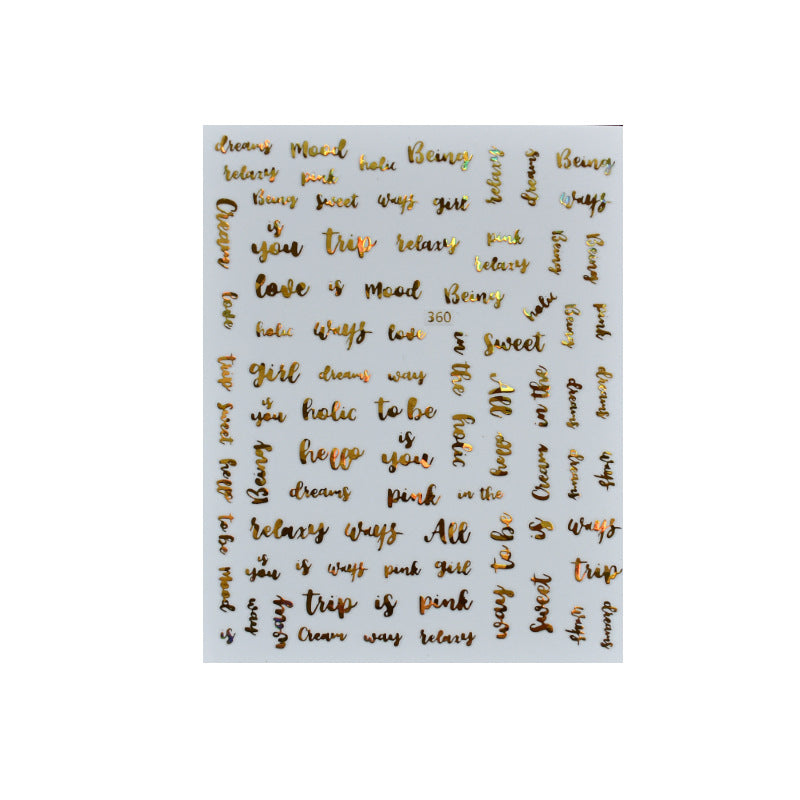 dreams Mood holic Being
relaxy pink
relaxy
dreams
Being
ways
Being sweet ways girl
Cream love trip sweet hello to be mood is
is
you trip relaxy
pink
relaxy
Being
Being
love is Mood Being
holic
Being
pink
360
holic ways love
in the holic
Sweet
girl dreams way
All hello
Cream in the
dreams
dreams
is
you holic to be
Being
hello
is
you
dreams
ways
dreams pink in the
relaxy ways All
way to be
sweet is
ways
is
you is ways pink girl
trip
way
way
trip is pink
ways
dreams
Cream way relaxy